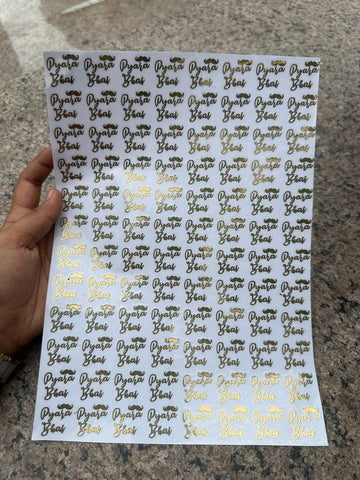 Pyara Pyara Pyara Pyara Pyara Pyara Pyara Pyara
Bhai Bhai Bhai Bhai Bhai Bhai Bhai Bhai
Pyara Pyara Pyara Pyara Pyara Pyara Pyara Pyara
Bhai Bhai Bhai Bhai Bhai Bhai Bhai Bhai
Pyara Pyara Pyara Pyara Pyara Pyara Pyara Pyara
Bhai Bhai Bhai Bhai Bhai Bhai Bhai Bhai
Pyara Pyara Pyara Pyara Pyara Pyara Pyara Pyara
Bhai Bhai Bhai Bhai Bhai Bhai Bhai Bhai
Pyara Pyara Pyara Pyara Pyara Pyara Pyara Pyara
Bhai Bhai Bhai Bhai Bhai Bhai Bhai Bhai
Pyara Pyara Pyara Pyara Pyara Pyara Pyara Pyara
Bhai Bhai Bhai Bhai Bhai Bhai Bhai Bhai
Pyara Pyara Pyara Pyara Pyara Pyara Pyara Pyara
Bhai Bhai Bhai Bhai Bhai Bhai Bhai Bhai
Pyara Pyara Pyara Pyara Pyara Pyara Pyara Pyara
Bhai Bhai Bhai Bhai Bhai Bhai Bhai Bhai
Pyara Pyara Pyara Pyara Pyara Pyara Pyara Pyara
Bhai Bhai Bhai Bhai Bhai Bhai Bhai Bhai
Pyara Pyara Pyara Pyara Pyara Pyara Pyara Pyara
Bhai Bhai Bhai Bhai Bhai Bhai Bhai Bhai
Pyara Pyara Pyara Pyara Pyara Pyara Pyara Pyara
Bhai Bhai Bhai Bhai Bhai Bhai Bhai Bhai
Pyara Pyara Pyara Pyara Pyara Pyara Pyara Pyara
Bhai Bhai Bhai Bhai Bhai Bhai Bhai Bhai